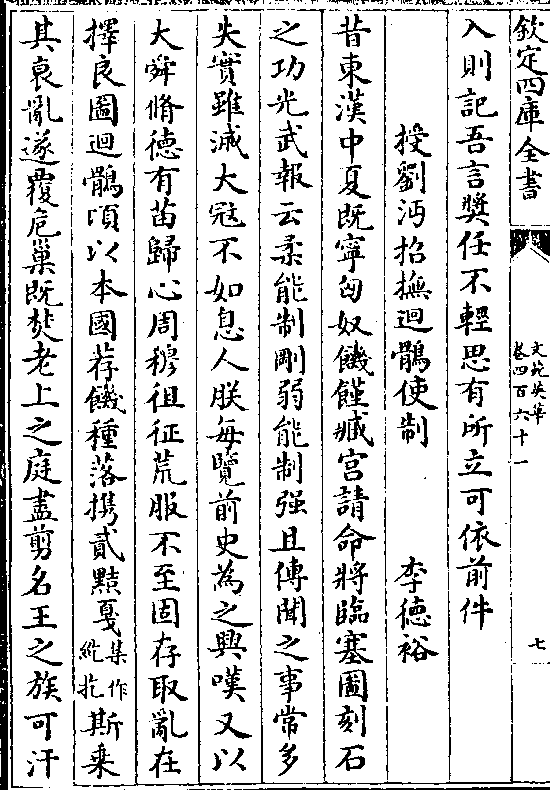 欽定四庫全書
文苑英華
卷四百六十一
七
入則記吾言奬任不輕思有所立可依前件
授劉沔招撫迴鶻使制 李德裕
昔東漢中夏既寧匈奴饑饉臧宫請命將臨塞圖刻石
之功光武報云柔能制剛弱能制强且傳聞之事常多
失實雖滅大寇不如息人朕每覽前史為之興嘆又以
大舜脩德有苗歸心周穆徂征荒服不至固存取亂在
擇良圖迴鶻頃以本國荐饑種落攜貳黠戛集作紇扢斯乗
其衰亂遂覆危巢既焚老上之庭盡剪名王之族可汗